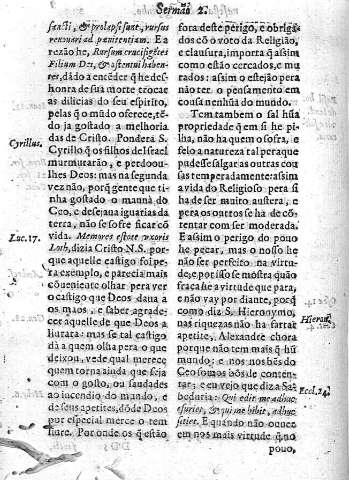 Sermão 2.
sancti, & prolapsi sunt, rursus
renovari ad pœnitentiam. E a
rezão he, Rursum crucifigẽtes
Filium Dei, & ostentui haben-
tes, dãdo a encẽder q̃ he des-
honra de sua morte trocar
as dilicias do seu espirito,
pelas q̃ o mũdo oferece, tẽ-
do ja gostado a melhoria
das de Cristo. Pondera S.
Cyrillus.
Cyrillo, q̃ os filhos de Israel
murmurarão, e perdoou-
lhes Deos: mas na segunda
vez não, porq̃ gente que ti-
nha gostado o mannâ do
Ceo, e desejava iguarias da
terra, não se sofre ficar cõ
vida. Memores estote uxoris
Luc. 17.
Loth, dizia Cristo N.S. por-
que aquelle castigo foi pe-
ra exemplo, e parecia mais
cõveniente olhar pera ver
o castigo que Deos dava a
os maos, e saber agrade-
cer aquelle de que Deos a
livrara: mas se tal castigo
dà a quem olha pera o que
deixou, vede qual merece
quem torna ainda que seja
com o golho, ou saudades
ao incendio do mundo, e
de seus apetites, dõde Deos
por especial merce o tem
livre. Por onde os q̃ estão
fora deste perigo, e obriga-
dos cõ o voto da Religião,
e clausura, importa q̃ assim
como estão cercados, e mu-
rados: assim o estejão pera
não ter o pensamento em
cousa nenhũa do mundo.
Tem tambem o sal hũa
propriedade q̃ em si he pi-
lha, não ha quem o sofra, e
felo a natureza tal pera que
pudesse salgar as outras cou-
sas temperadamente: assim
a vida do Religioso pera si
ha de ser muito austera, e
pera os outros se ha de cõ-
tentar com ser moderada.
E assim o perigo do povo
he pecar, mas o nosso he
não ser perfeito na virtu-
de, e por isso se mostra quão
fraca he a virtude que para,
e não vay por diante, porq̃
como diz S. Hieronymo,
Hieron.
nas riquezas não ha fartar
apetite, Alexandre chora
porque não tem mais q̃ hũ
mundo; e nos nos bẽs do
Ceo somos bõs de conten-
tar; e eu vejo que diz a Sa-
Eccl. 24.
beduria: Qui edit me adhuc
esuriet, & qui me bibit, adhuc
sitiet. E quando não ouuce
em nos mais virtude q̃ no
povo,